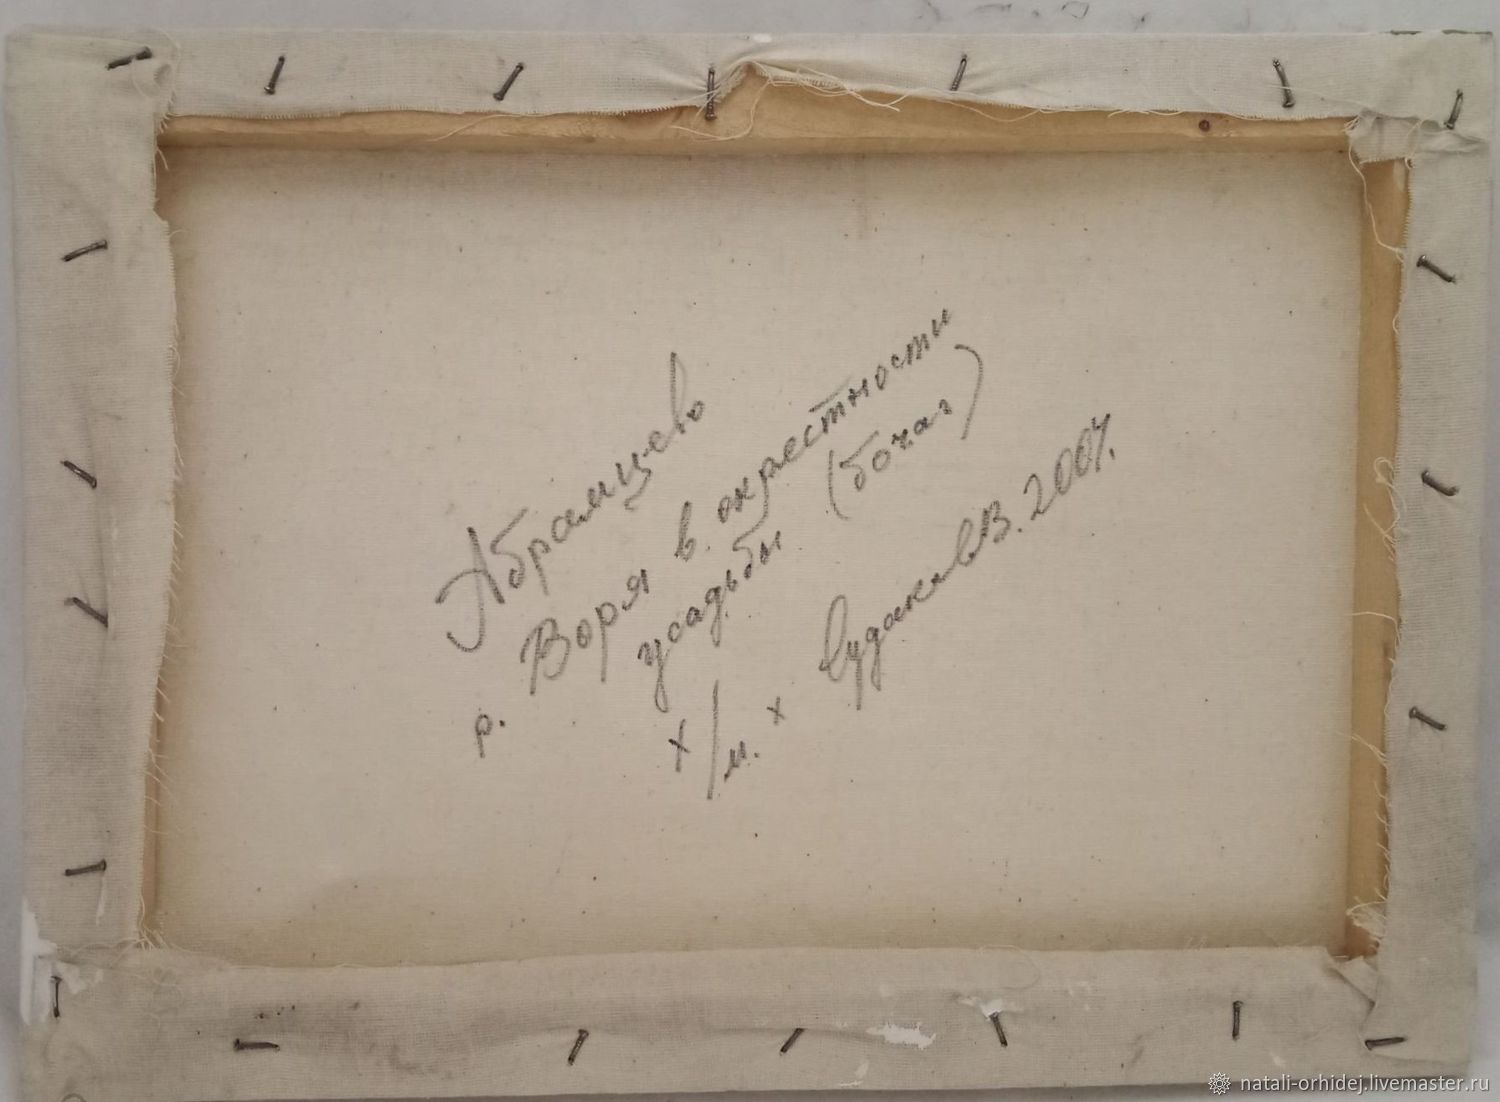 Абрамцево
р. Воря в. окрестности
усадьбы (бочаг)
х/м. х Судаков В. 2007.
natali-orhidej.livemaster.ru